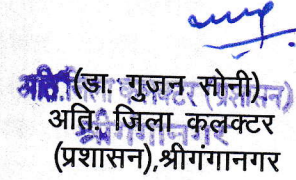 (डा. गुजन सोनी)
अति. जिला कलक्टर
(प्रशासन),श्रीगंगानगर